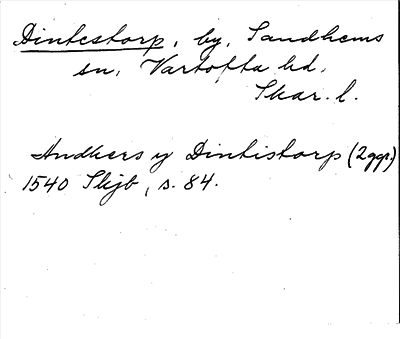 Dintestorp, by, Sandhems
sn, Vartofta hd,
Skar. l.
Andhers y Dintistorp (2ggr)
1540 Skjb, s. 84.